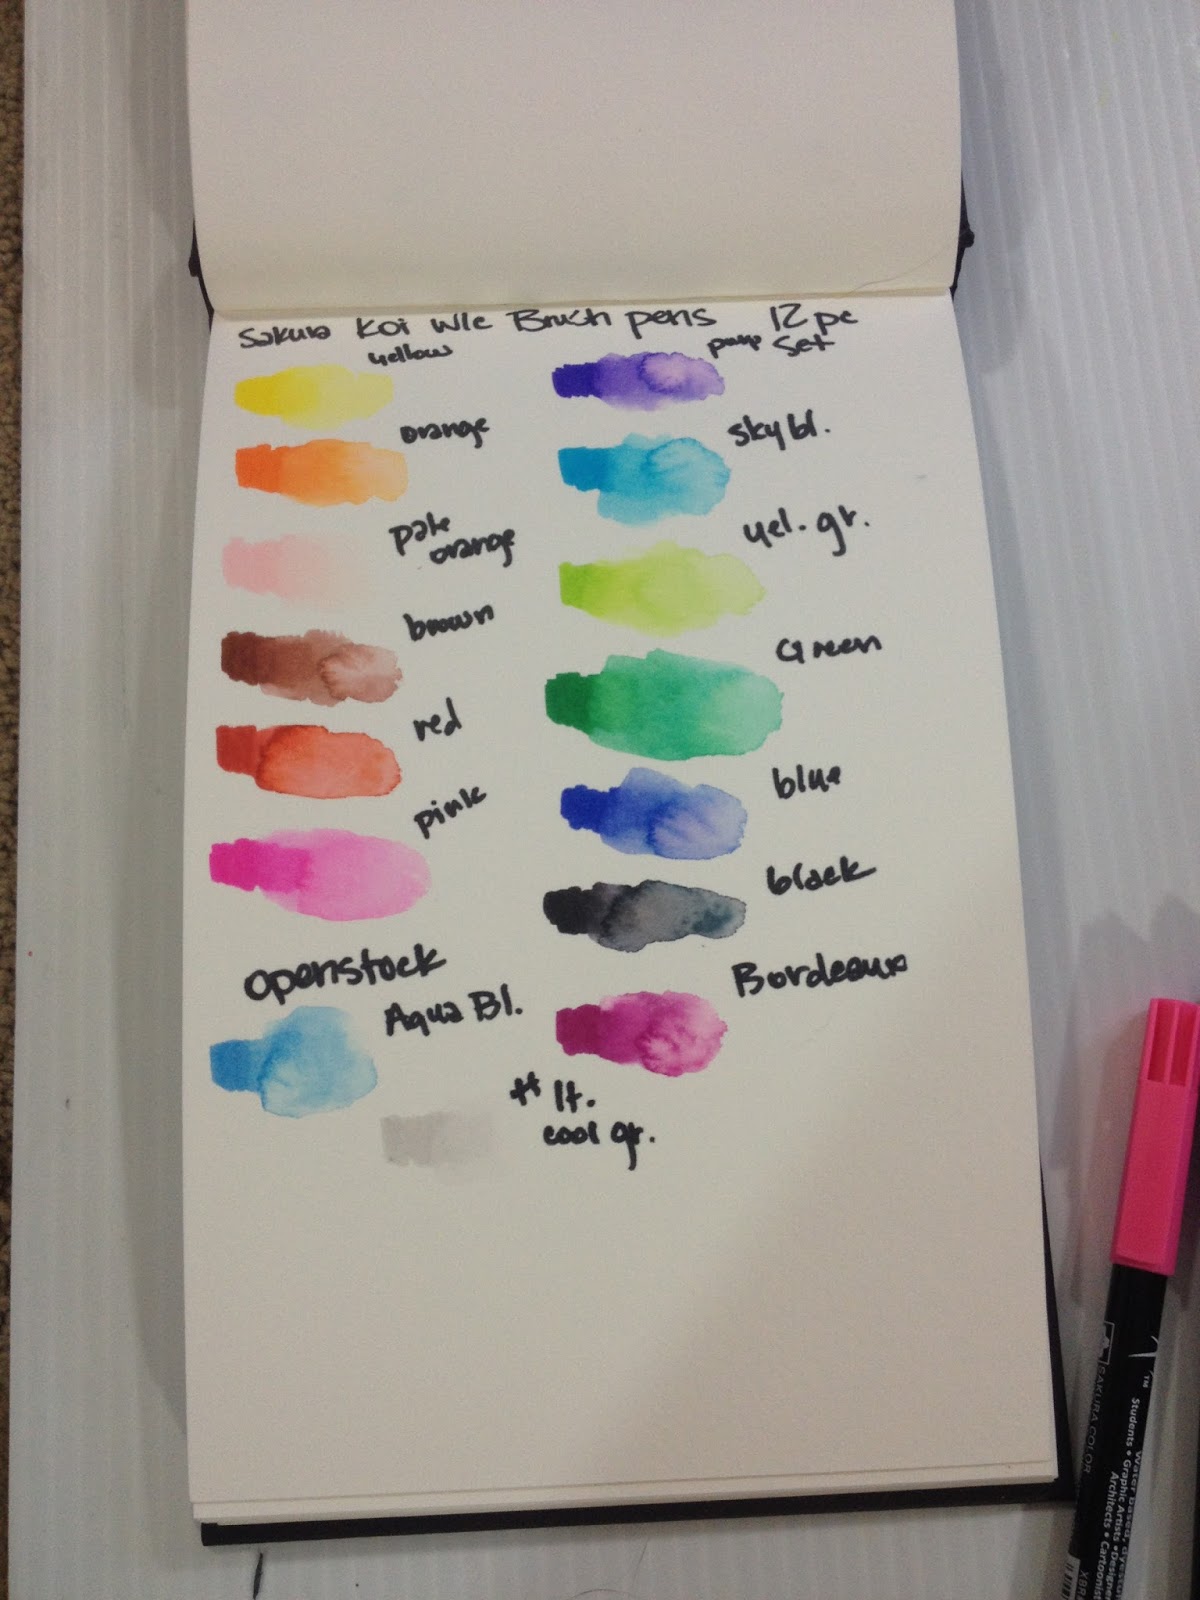 Sakura Koi W/c Brush pens 12 pc
set
yellow
purp
orange
sky bl.
pale
orange
yel. gr.
brown
Green
red
blue
pink
black
Openstock
Bordeaux
Aqua Bl.
lt.
cool gr.
™
SAKURA COLOR
Water based, dye
Students • Graphic Artists • Designe
Architects • Cartoonist
XBR